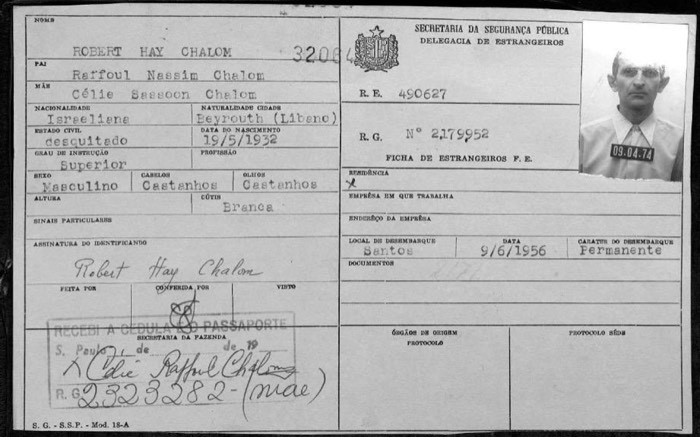 NOME
ROBERT HAY CHALOM
PAI
Raffoul Nassim Chalom
MÃE
Célie Sassoon Chalom
NACIONALIDADE NATURALIDADE CIDADE
Israeliana Beyrouth (Libano)
ESTADO CIVIL DATA DO NASCIMENTO
desquitado 19/5/1932
GRAU DE INSTRUÇÃO PROFISSÃO
Superior
SEXO CABELOS OLHOS
Masculino Castanhos Castanhos
ALTURA CÚTIS
Branca
SINAIS PARTICULARES
ASSINATURA DO IDENTIFICANDO
Robert Hay Chalom
FEITA POR CONFERIDA POR VISTO
RECEBI A CEDULA E O PASSAPORTE
SECRETARIA DA FAZENDA
S. Paulo, de de 19
X Célie Raffoul Chalom
R. G. 2323282 - (mãe)
S. G. - S.S.P. - Mod. 18-A
SECRETARIA DA SEGURANÇA PÚBLICA
DELEGACIA DE ESTRANGEIROS
R. E. 490627
R. G. Nº 2,179952
FICHA DE ESTRANGEIROS F. E.
09.04.74
RESIDÊNCIA
x
EMPRÊSA EM QUE TRABALHA
ENDERÊÇO DA EMPRÊSA
LOCAL DE DESEMBARQUE DATA CARATER DO DESEMBARQUE
Santos 9/6/1956 Permanente
DOCUMENTOS
ÓRGÃOS DE ORIGEM PROTOCOLO SÉDE
PROTOCOLO